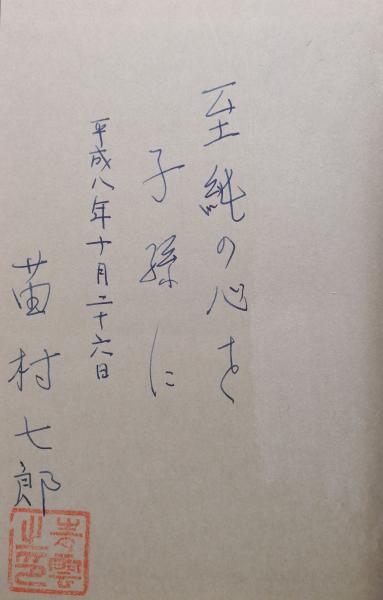 至純の心を
子孫に
平成八年十月二十六日
苗村七郎